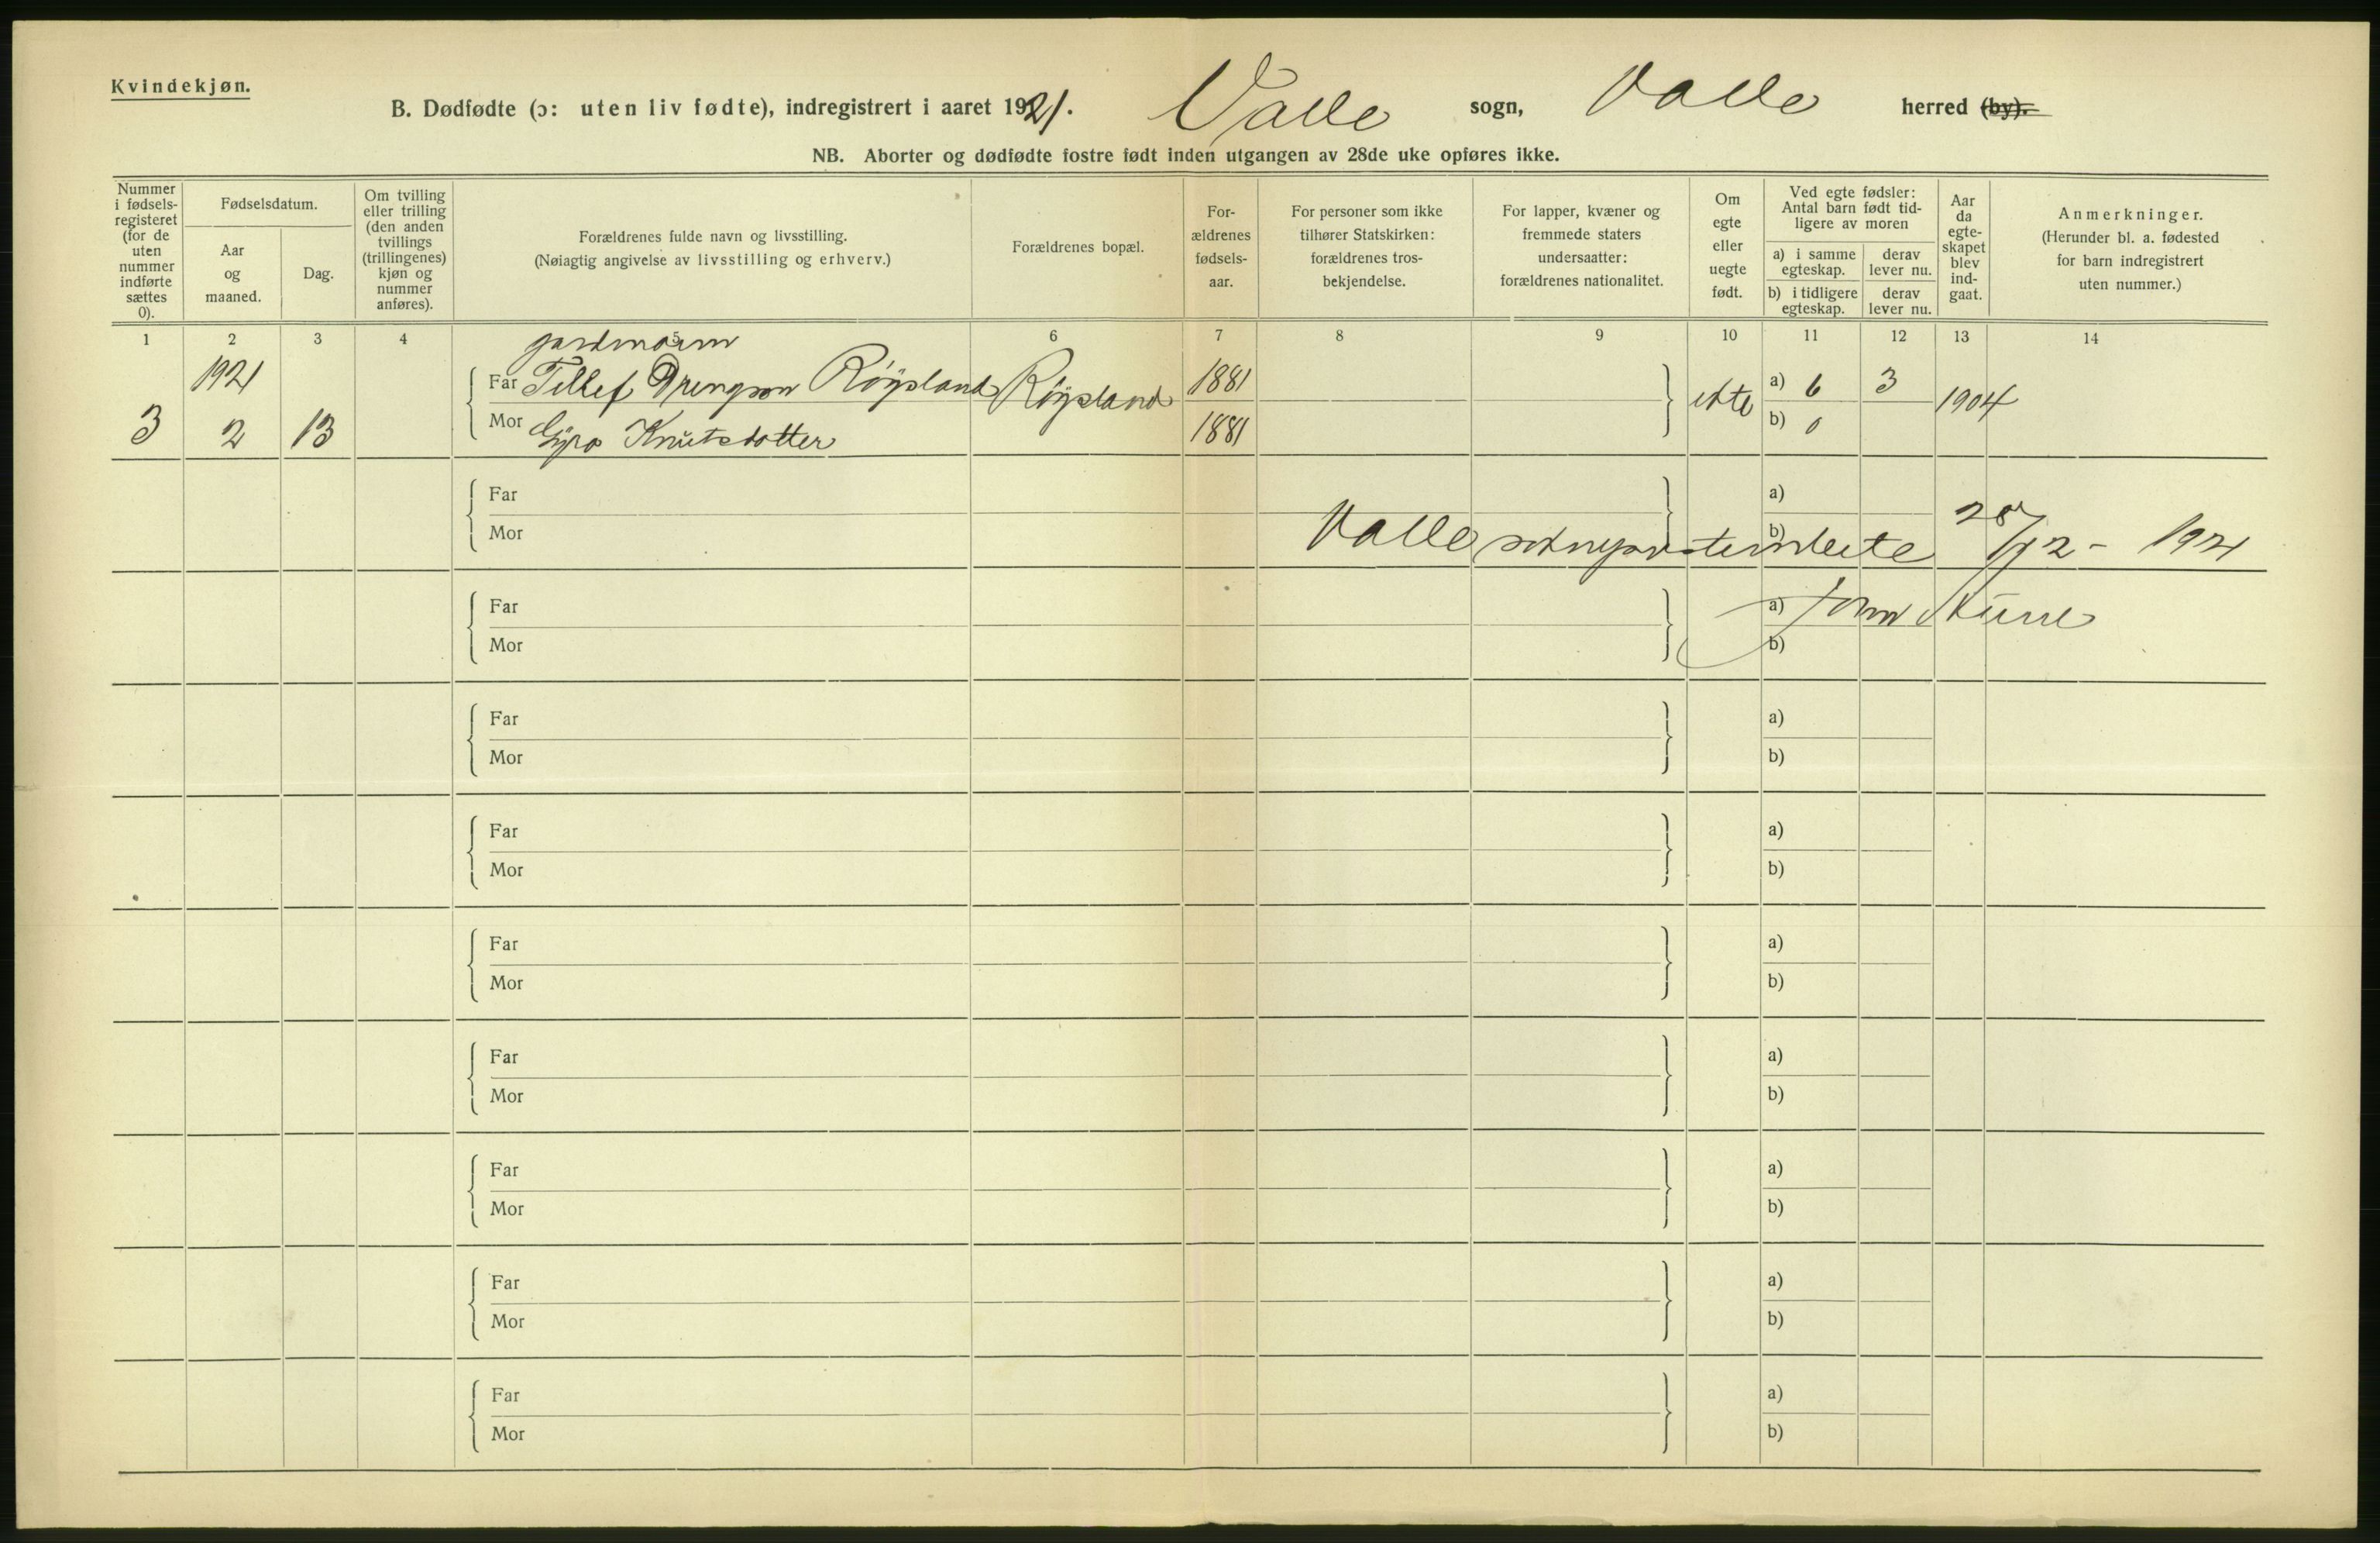 Kvindekjøn.
B. Dødfødte (ɔ: uten liv fødte), indregistrert i aaret 1921. Valle sogn, Valle herred (by).
NB. Aborter og dødfødte fostre født inden utgangen av 28de uke opføres ikke.
Nummer i fødsels-registeret (for de uten nummer indførte sættes 0).
Fødselsdatum.
Aar og maaned.
Dag.
Om tvilling eller trilling (den anden tvillings (trillingenes) kjøn og nummer anføres).
Forældrenes fulde navn og livsstilling.
(Nøiagtig angivelse av livsstilling og erhverv.)
Forældrenes bopæl.
For-ældrenes fødsels-aar.
For personer som ikke tilhører Statskirken: forældrenes tros-bekjendelse.
For lapper, kvæner og fremmede staters undersaatter: forældrenes nationalitet.
Om egte eller uegte født.
Ved egte fødsler: Antal barn født tid-ligere av moren
a) i samme egteskap.
derav lever nu.
b) i tidligere egteskap.
derav lever nu.
Aar da egte-skapet blev ind-gaat.
Anmerkninger.
(Herunder bl. a. fødested for barn indregistrert uten nummer.)
1 2 3 4 6 7 8 9 10 11 12 13 14
1921
Far Tellef Drengson Røysland Røysland 1881 a) 6 3 1904
3 2 13 Mor Gyro Knutsdotter 1881 b) 0
Far a)
Mor b)
Valle 28/12 - 1921
Far a)
Mor b)
Far a)
Mor b)
Far a)
Mor b)
Far a)
Mor b)
Far a)
Mor b)
Far a)
Mor b)
Far a)
Mor b)
Far a)
Mor b)